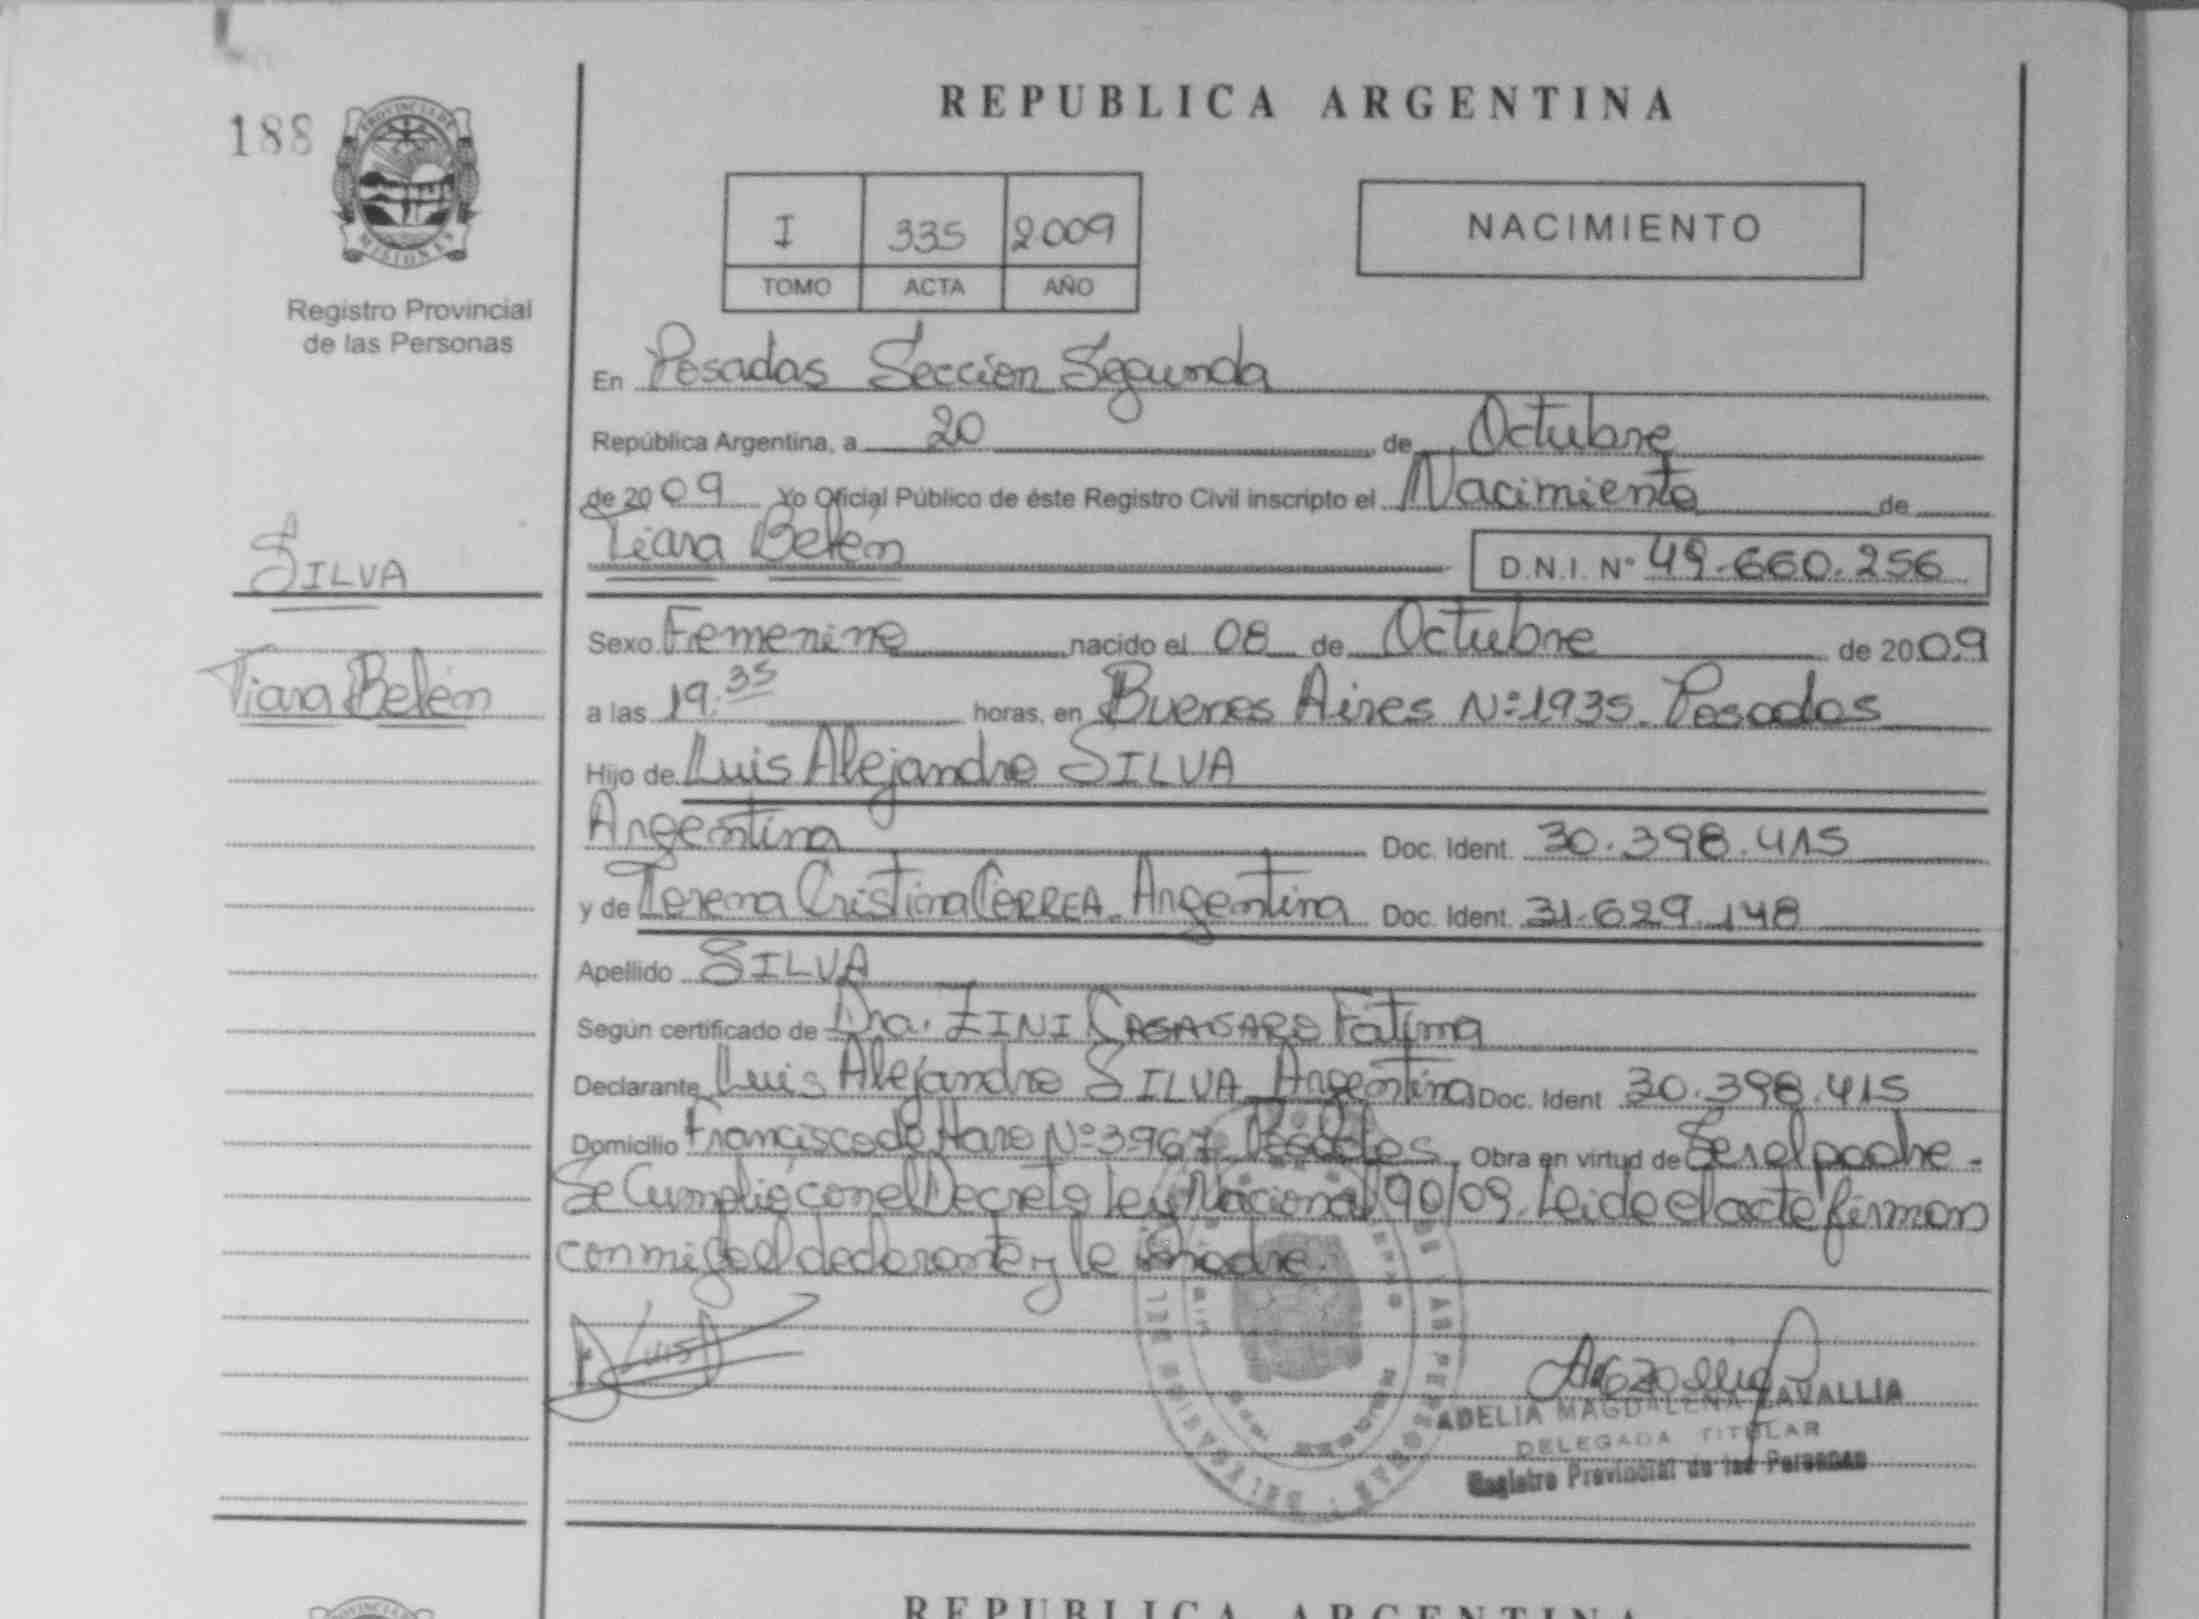 REPUBLICA ARGENTINA
188
PROVINCIA DE
MISIONES
Registro Provincial
de las Personas
I 335 2009
TOMO ACTA AÑO
NACIMIENTO
En Posadas Sección Segunda
República Argentina, a 20 de Octubre
de 2009 Yo Oficial Público de éste Registro Civil inscripto el Nacimiento de
Tiara Belén
D.N.I. Nº 49.660.256
SILVA
Tiara Belén
Sexo Femenino nacido el 08 de Octubre de 2009
a las 19:35 horas, en Buenos Aires Nº 1935. Posadas
Hijo de Luis Alejandro SILVA
Argentina Doc. Ident. 30.398.415
y de Lorena Cristina CORREA. Argentina Doc. Ident. 31.629.148
Apellido SILVA
Según certificado de Dra. ZINI Fátima
Declarante Luis Alejandro SILVA Argentina Doc. Ident 30.398.415
Domicilio Francisco de Haro Nº 3967 Posadas. Obra en virtud de Ser el padre.
Se Cumplió con el Decreto Ley Nacional 90/09. Leido el acta firman
conmigo el declarante y la madre.
Luis
ADELIA MAGDALENA ZAVALLIA
DELEGADA TITULAR
Registro Provincial de las Personas
REPUBLICA ARGENTINA